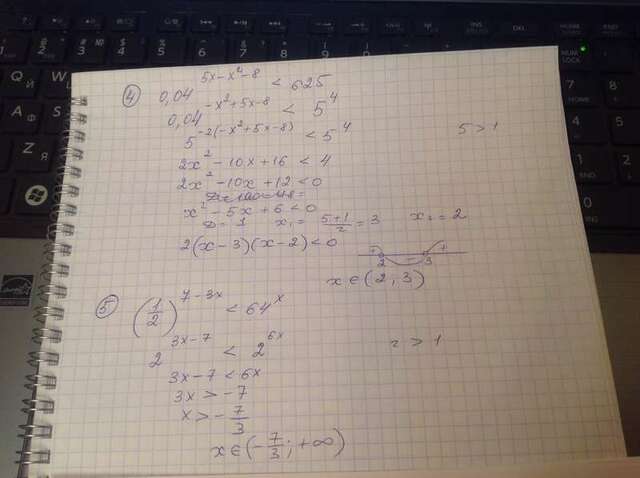 ④ 0,04^(5x-x⁴-8) < 625
0,04^(-x²+5x-8) < 5⁴
5^(-2(-x²+5x-8)) < 5⁴ 5 > 1
2x² - 10x + 16 < 4
2x² - 10x + 12 < 0
x² - 5x + 6 < 0
D = 1 x₁ = (5+1)/2 = 3 x₂ = 2
2(x-3)(x-2) < 0 + 2 - 3 +
x ∈ (2, 3)
⑤ (1/2)^(7-3x) < 64^x
2^(3x-7) < 2^(6x) 2 > 1
3x-7 < 6x
3x > -7
x > -7/3
x ∈ (-7/3; +∞)